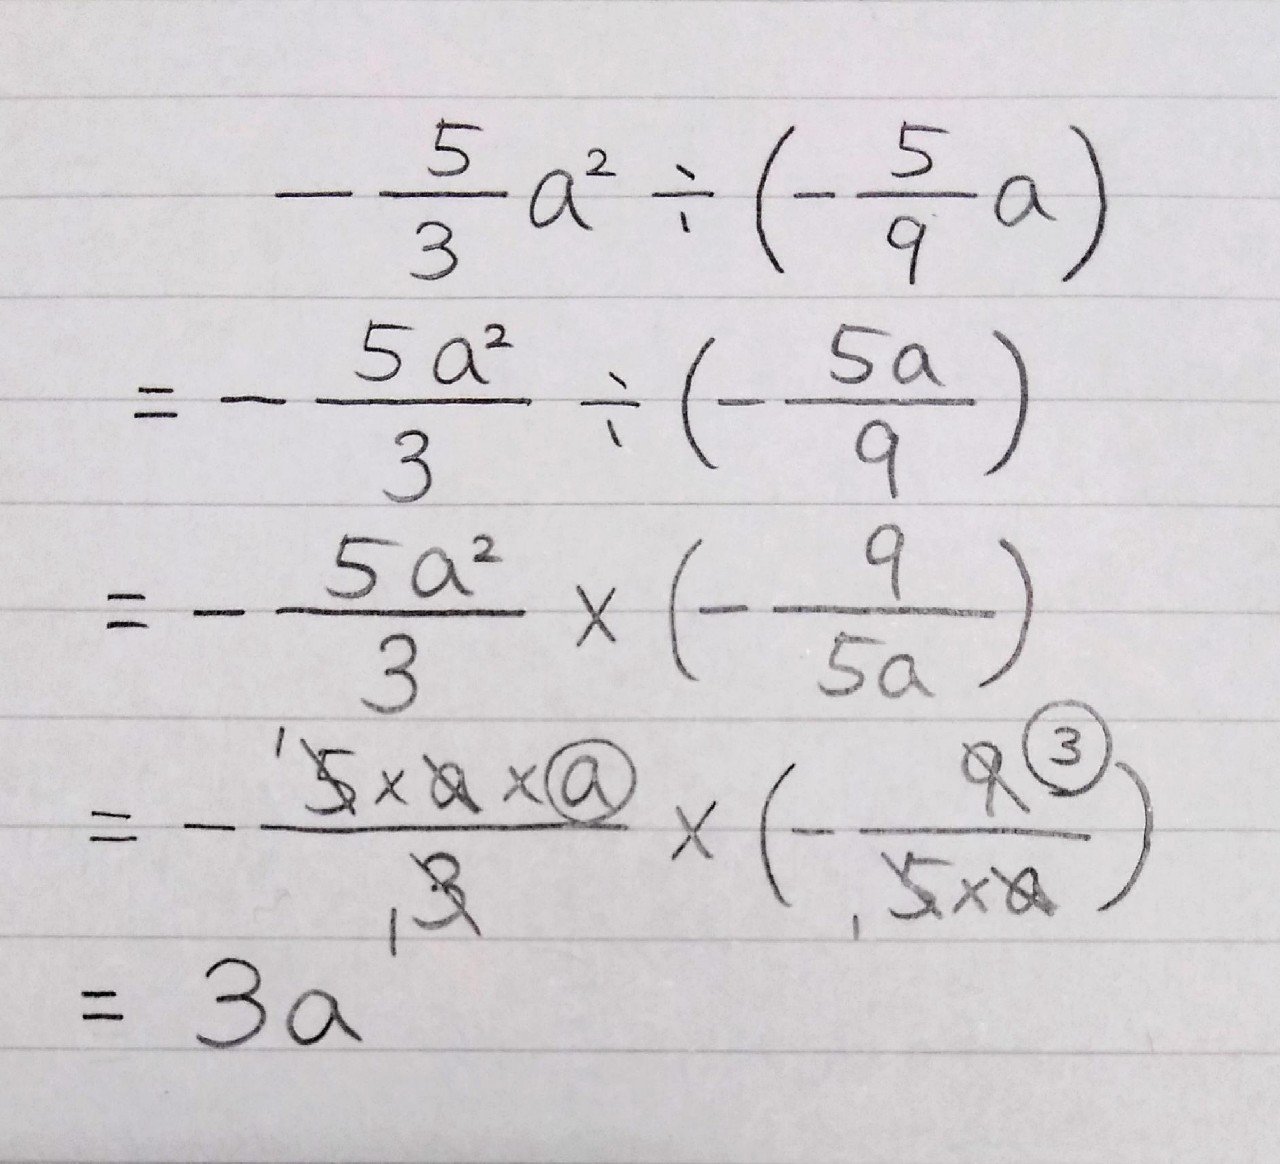 -5/3 a² ÷ (-5/9 a)
= -5a²/3 ÷ (-5a/9)
= -5a²/3 × (-9/5a)
= - 1 5×a×a / 1 3 × (- 9 3 / 1 5×a)
= 3a